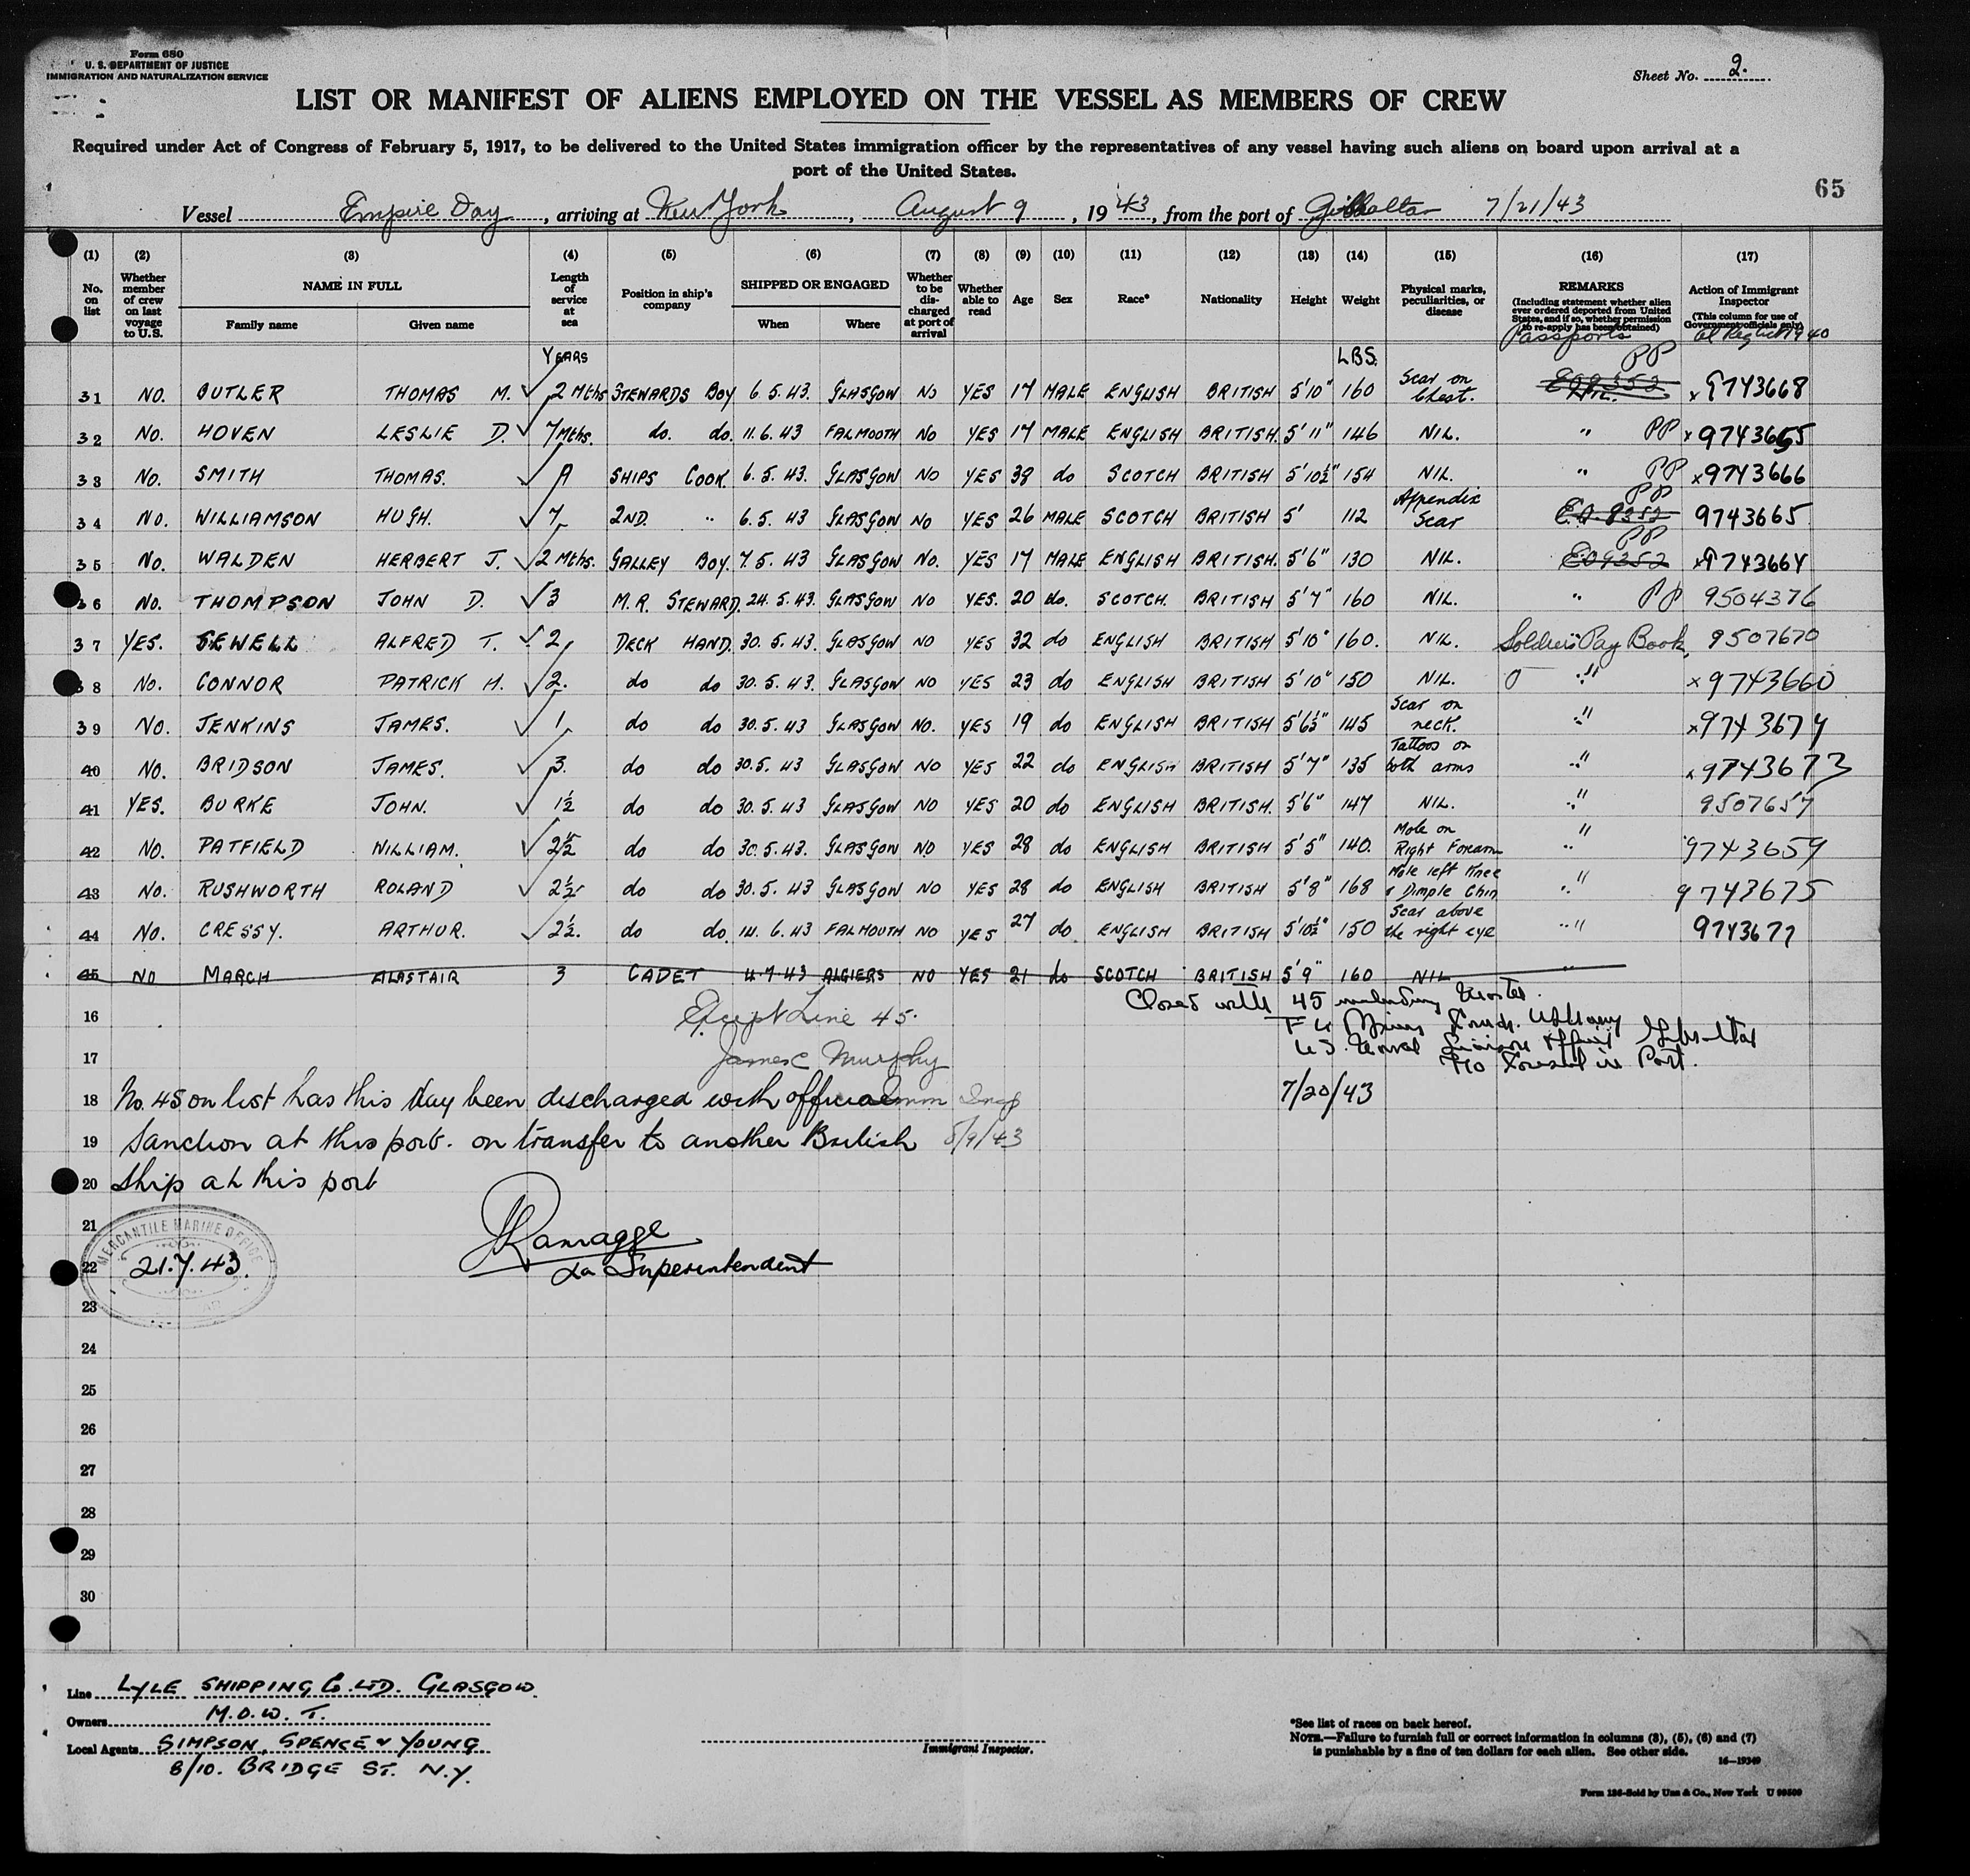 Form 680
U. S. DEPARTMENT OF JUSTICE
IMMIGRATION AND NATURALIZATION SERVICE
Sheet No. 2.
LIST OR MANIFEST OF ALIENS EMPLOYED ON THE VESSEL AS MEMBERS OF CREW
Required under Act of Congress of February 5, 1917, to be delivered to the United States immigration officer by the representatives of any vessel having such aliens on board upon arrival at a
port of the United States.
65
Vessel Empire Day, arriving at New York, August 9, 1943, from the port of Gibraltar 7/21/43
(1) (2) (3) (4) (5) (6) (7) (8) (9) (10) (11) (12) (13) (14) (15) (16) (17)
No. on list
Whether member of crew on last voyage to U.S.
NAME IN FULL
Family name Given name
Length of service at sea
Position in ship's company
SHIPPED OR ENGAGED
When Where
Whether to be discharged at port of arrival
Whether able to read
Age Sex Race* Nationality Height Weight
Physical marks, peculiarities, or disease
REMARKS
(Including statement whether alien ever ordered deported from United States, and if so, whether permission to re-apply has been obtained)
Passports
Action of Immigrant Inspector
(This column for use of Government officials only)
YEARS LBS.
31 NO. BUTLER THOMAS M. 2 Mths STEWARDS BOY 6.5.43. GLASGOW NO YES 17 MALE ENGLISH BRITISH 5'10" 160 Scar on Chest. NIL. PP x9743668
32 NO. HOVEN LESLIE D. 7Mths. do. do. 11.6.43 FALMOUTH NO YES 17 MALE ENGLISH BRITISH. 5'11" 146 NIL. " PP x9743655
33 NO. SMITH THOMAS. SHIPS COOK. 6.5.43. GLASGOW NO YES 38 do SCOTCH BRITISH 5'10½" 154 NIL. " PP x9743666
34 NO. WILLIAMSON HUGH. 7 2ND. " 6.5.43 GLASGOW NO YES 26 MALE SCOTCH BRITISH 5' 112 Appendix Scar PP 9743665
35 NO. WALDEN HERBERT J. 2 Mths. GALLEY BOY. 7.5.43 GLASGOW NO. YES 17 MALE ENGLISH BRITISH. 5'6" 130 NIL. EO9352 PP x9743664
36 NO. THOMPSON JOHN D. 3 M.R. STEWARD. 24.5.43. GLASGOW NO YES. 20 do. SCOTCH. BRITISH 5'7" 160 NIL. " PP 9504376
37 YES. SEWELL ALFRED T. 2 DECK HAND. 30.5.43. GLASGOW NO YES 32 do ENGLISH BRITISH 5'10" 160. NIL. Soldiers Pay Book. 9507670
38 NO. CONNOR PATRICK H. 2. do do 30.5.43. GLASGOW NO YES 23 do ENGLISH BRITISH 5'10" 150 NIL. " x9743660
39 NO. JENKINS JAMES. 1 do do 30.5.43 GLASGOW NO. YES 19 do ENGLISH BRITISH. 5'6½" 145 Scar on neck. " x9743674
40 NO. BRIDSON JAMES. 3. do do 30.5.43 GLASGOW NO YES 22 do ENGLISH BRITISH 5'7" 135 Tattoos on both arms " x9743673
41 YES. BURKE JOHN. 1½ do do 30.5.43 GLASGOW NO YES 20 do ENGLISH BRITISH. 5'6" 147 NIL. " 9507657
42 NO. PATFIELD WILLIAM. 2½ do do 30.5.43. GLASGOW NO YES 28 do ENGLISH BRITISH 5'5" 140. Mole on Right Forearm " 9743659
43 NO. RUSHWORTH ROLAND 2½ do do 30.5.43 GLASGOW NO YES 28 do ENGLISH BRITISH 5'8" 168 Mole left Knee & Dimple Chin " 9743675
44 NO. CRESSY. ARTHUR. 2½. do do. 14.6.43 FALMOUTH NO YES 27 do ENGLISH BRITISH 5'10½" 150 Scar above the right eye " 9743677
45 NO MARCH ALASTAIR 3 CADET 4.7.43 ALGIERS NO YES 21 do SCOTCH BRITISH 5'9" 160 NIL "
16 Except Line 45. Closed with 45 including
17 James C Murphy U.S. Naval Liaison Officer Gibraltar
18 No. 45 on list has this day been discharged with official Imm Insp 7/20/43
19 Sanction at this port. on transfer to another British 8/9/43
20 Ship at this port
21 MERCANTILE MARINE OFFICE
22 21.7.43. Ramagge
Superintendent
23
24
25
26
27
28
29
30
Line LYLE SHIPPING Co. LTD. GLASGOW
Owners M.O.W.T.
Local Agents SIMPSON, SPENCE & YOUNG
8/10. BRIDGE ST. N.Y.
Immigrant Inspector.
*See list of races on back hereof.
NOTE.—Failure to furnish full or correct information in columns (3), (5), (6) and (7)
is punishable by a fine of ten dollars for each alien. See other side.
16—19349
Form 126-Sold by Unz & Co., New York